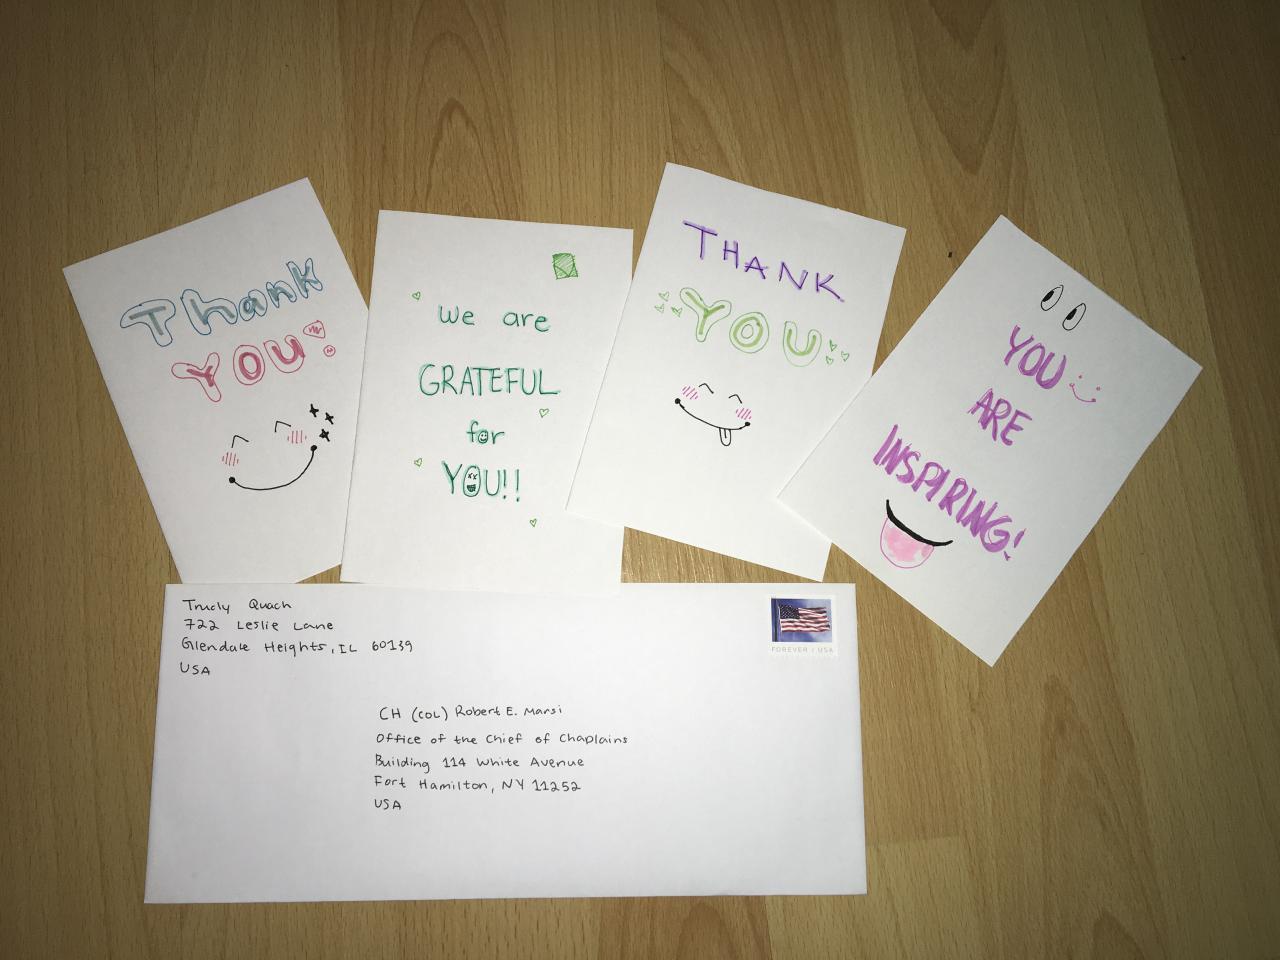 Thank
YOU!
we are
GRATEFUL
for
YOU!!
THANK
YOU
YOU
ARE
INSPIRING!
Trudy Quach
722 Leslie Lane
Glendale Heights, IL 60139
USA
FOREVER / USA
CH (COL) Robert E. Marsi
Office of the Chief of Chaplains
Building 114 White Avenue
Fort Hamilton, NY 11252
USA